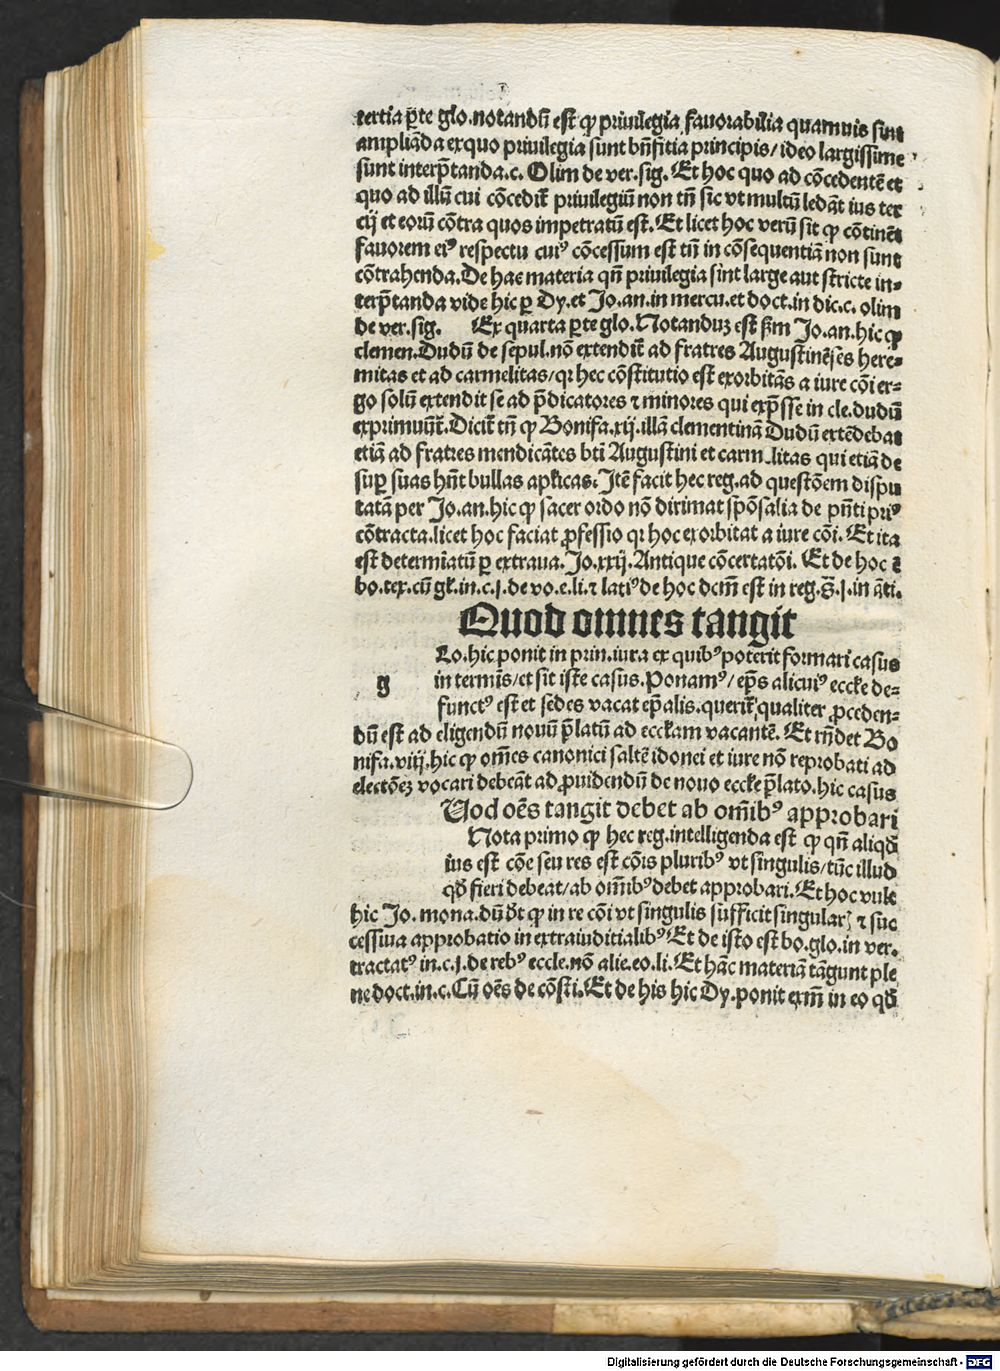 tertia p̄te glo.notandū est ꝙ priuilegia fauorabilia quamuis sint
ampliāda exquo priuilegia sunt bn̄fitia principis/ideo largissime
sunt interp̄tanda.c. Olim de ver.sig. Et hoc quo ad cōcedentē et
quo ad illū cui cōcedit̄ priuilegiū non tn̄ sic vt multū ledāt ius ter
cij et eorū cōtra quos impetratū est. Et licet hoc verū sit ꝙ cōtinēt
fauorem eiꝰ respectu cuiꝰ cōcessum est tn̄ in cōsequentiā non sunt
cōtrahenda. De hac materia qn̄ priuilegia sint large aut stricte in-
terp̄tanda vide hic ꝑ Dy.et Jo.an.in mercu.et doct.in dic.c. olim
de ver.sig. Ex quarta p̄te glo. Notanduꝫ est ẜm Jo.an.hic ꝙ
clemen.Dudū de sepul.nō extendit̄ ad fratres Augustinēses here-
mitas et ad carmelitas/qꝛ hec cōstitutio est exorbitās a iure cōi er-
go solū extendit se ad p̄dicatores ⁊ minores qui exp̄sse in cle.dudū
exprimunt̄. Dicit̄ tn̄ ꝙ Bonifa.xij.illā clementinā Dudū extēdebat
etiā ad fratres mendicātes bti Augustini et carmelitas qui etiā de
suꝑ suas hn̄t bullas apl̄icas. Itē facit hec reg.ad questōem dispu
tatā per Jo.an.hic ꝙ sacer ordo nō dirimat spōsalia de pn̄ti priꝰ
cōtracta.licet hoc faciat ꝓfessio qꝛ hoc exorbitat a iure cōi. Et ita
est determiatū ꝑ extraua.Jo.xxij.Antique cōcertatōi. Et de hoc ē
bo.tex.cū gl̄.in.c.j.de vo.e.li.⁊ latiꝰ de hoc dcm̄ est in reg.s̄.j.in āti.
Quod omnes tangit
Lo.hic ponit in prin.iura ex quibꝰ poterit formari casus
g
in termīs/et sit iste casus. Ponamꝰ/ep̄s alicuiꝰ eccl̄e de-
functꝰ est et sedes vacat ep̄alis.querit̄ qualiter ꝓceden-
dū est ad eligendū nouū p̄latū ad eccl̄am vacantē. Et rn̄det Bo
nifa.viij.hic ꝙ om̄es canonici saltē idonei et iure nō reprobati ad
electōeꝫ vocari debeāt ad ꝓuidendū de nouo eccl̄e p̄lato.hic casus
Uod oēs tangit debet ab om̄ibꝰ approbari
Nota primo ꝙ hec reg.intelligenda est ꝙ qn̄ aliqd̄
ius est cōe seu res est cōis pluribꝰ vt singulis/tūc illud
qd̄ fieri debeat/ab om̄ibꝰ debet approbari. Et hoc vult
hic Jo. mona.dū dt̄ ꝙ in re cōi vt singulis sufficit singularꝭ ⁊ suc
cessiua approbatio in extraiuditialibꝰ Et de isto est bo.glo.in ver.
tractatꝰ in.c.j.de rebꝰ eccle.nō alie.eo.li. Et hāc materiā tāgunt ple
ne doct.in.c.Cū oēs de cōsti. Et de his hic Dy.ponit exm̄ in eo qd̄
Digitalisierung gefördert durch die Deutsche Forschungsgemeinschaft - DFG